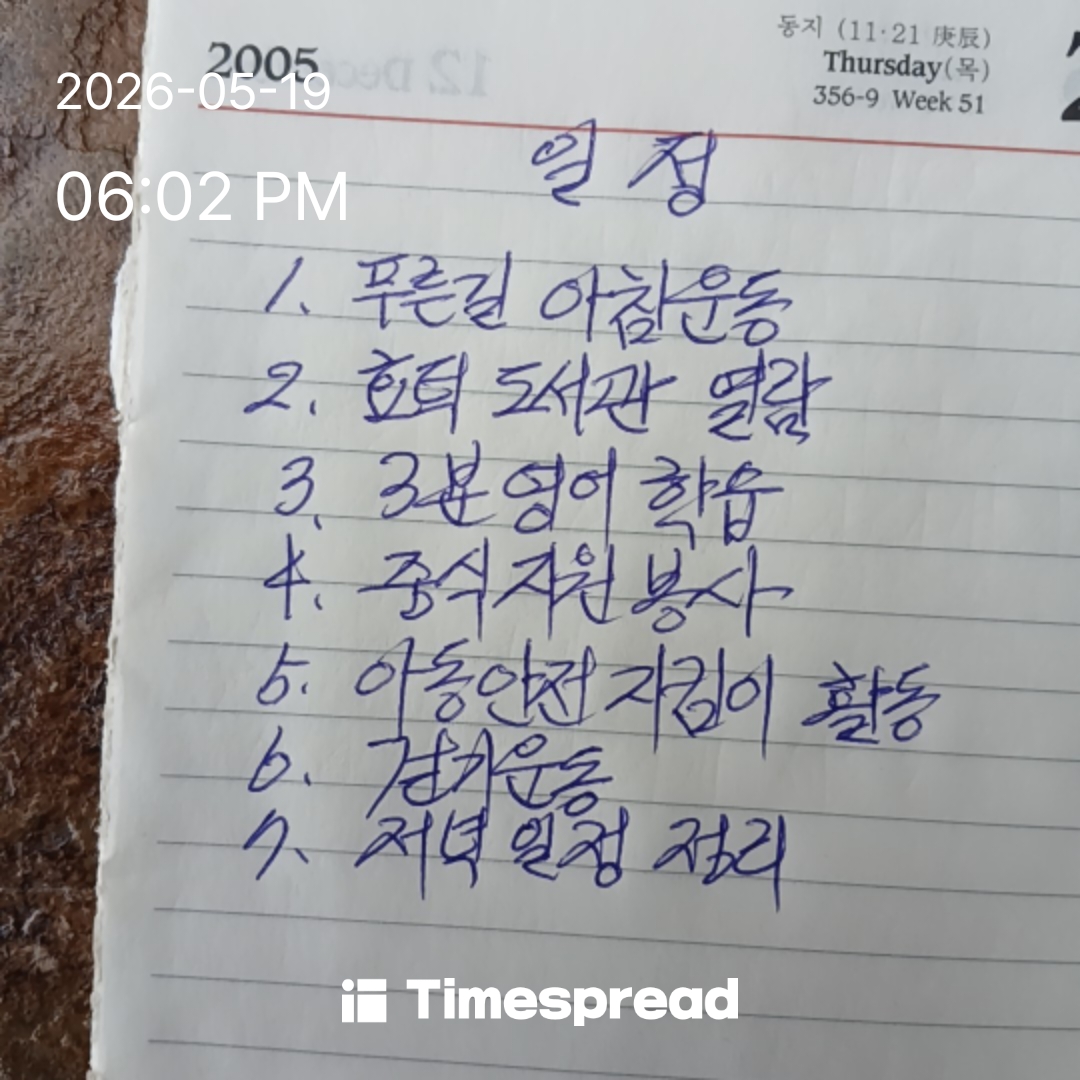 동지 (11·21 庚辰)
2005
Thursday(목)
356-9 Week 51
2026-05-19
06:02 PM
일정
1. 푸른길 아침운동
2. 효덕 도서관 열람
3. 3분 영어 학습
4. 중식 자원 봉사
5. 아동안전 지킴이 활동
6. 걷기운동
7. 저녁 일정 정리
Timespread